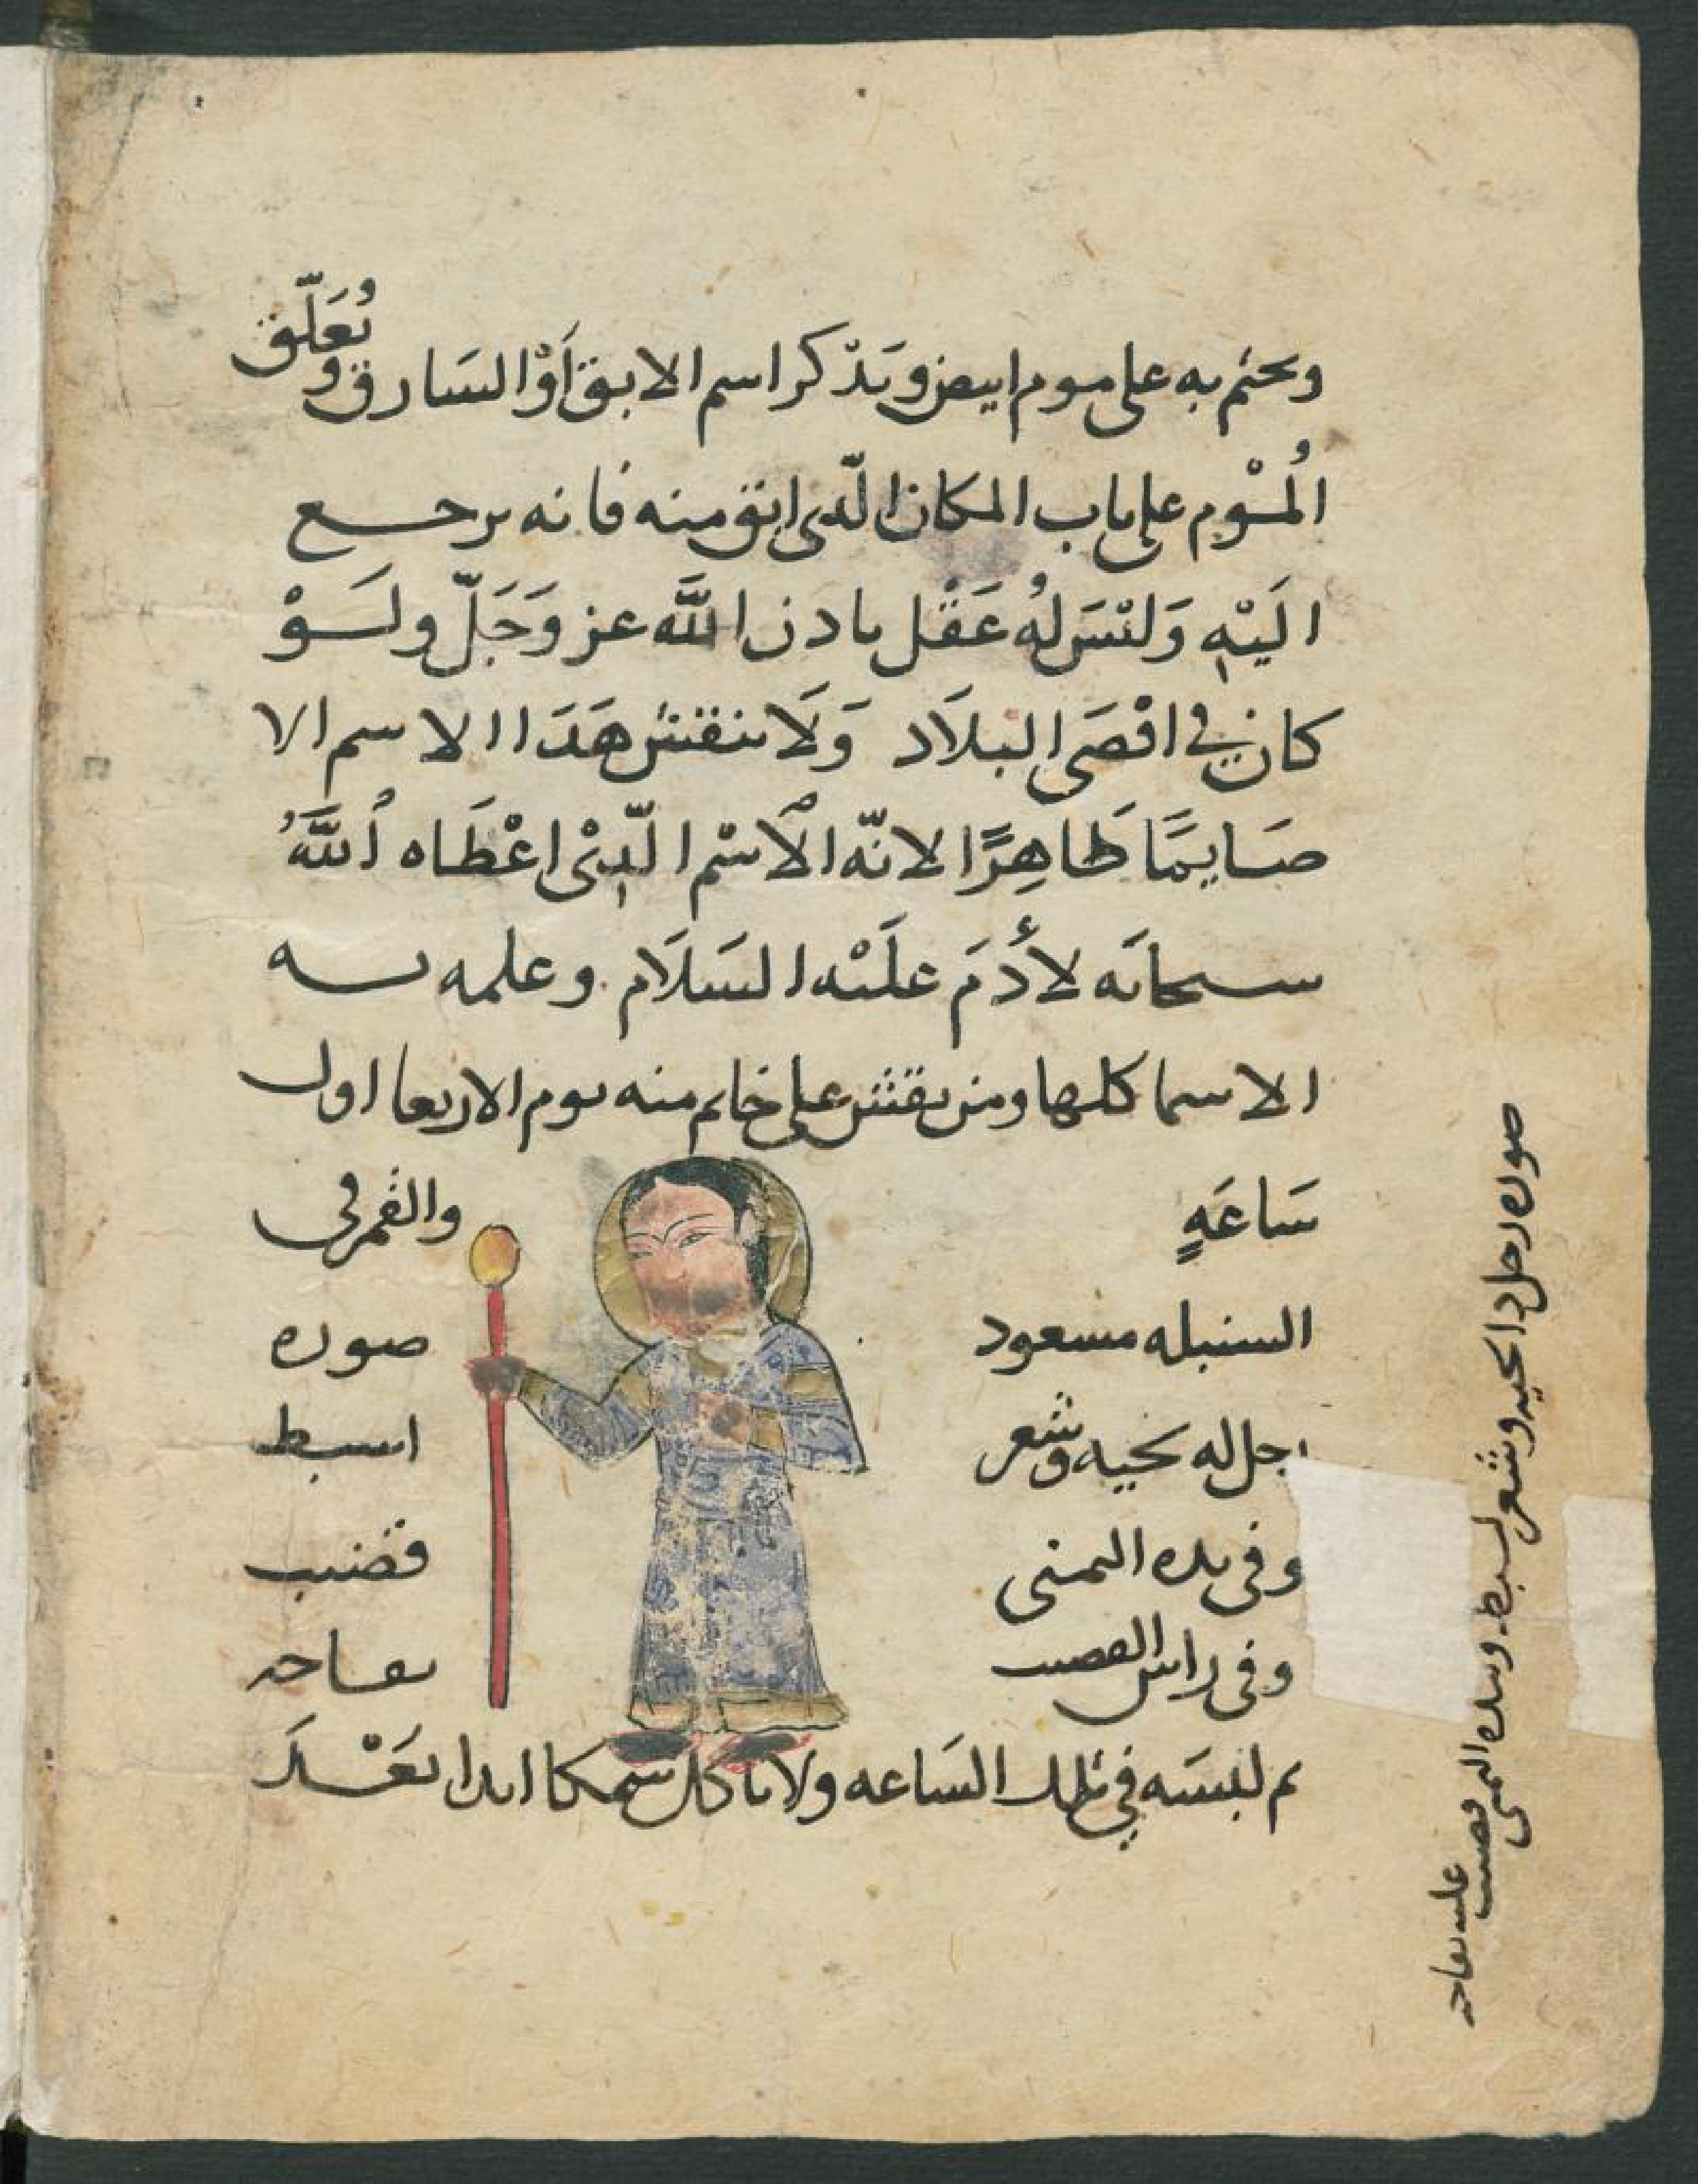 ويختم به على موم ابيض وتذكر اسم الابق اَوْ السَارق وتُعَلّق
الْمُوْم على باب المكان الّدى ابق منه فانه يرجع
اليَهِ وَليْسَ لهُ عَقْل بادن اللَّه عز وَجَلّ ولَوْ
كان فى اقْصَى البلَاد وَلَا ينقش هَدَا الاسم الا
صَايمًا طَاهِرًا لانّه الْاسْم الّدِىْ اعْطَاه اُللَّهُ
سبحانَه لأدَمَ علَيْه السَلَام وعلمه به
الاسما كلها ومن نقش على خاتم منه يوم الاربعا اول
سَاعَةٍ والقمر فى
السنبله مسعود صوره
رجل له لحيه وشعر اسبط
وفى يده اليمنى قضيب
وفى راس القضيب تفاحه
ثم لبسَه فى تلك السَاعه ولا ياكل سمكا ابدا بَعْدَ
صوره رجل دا لحيه وشعر سبط وبيده اليمنى قضيب
عليه تفاحه